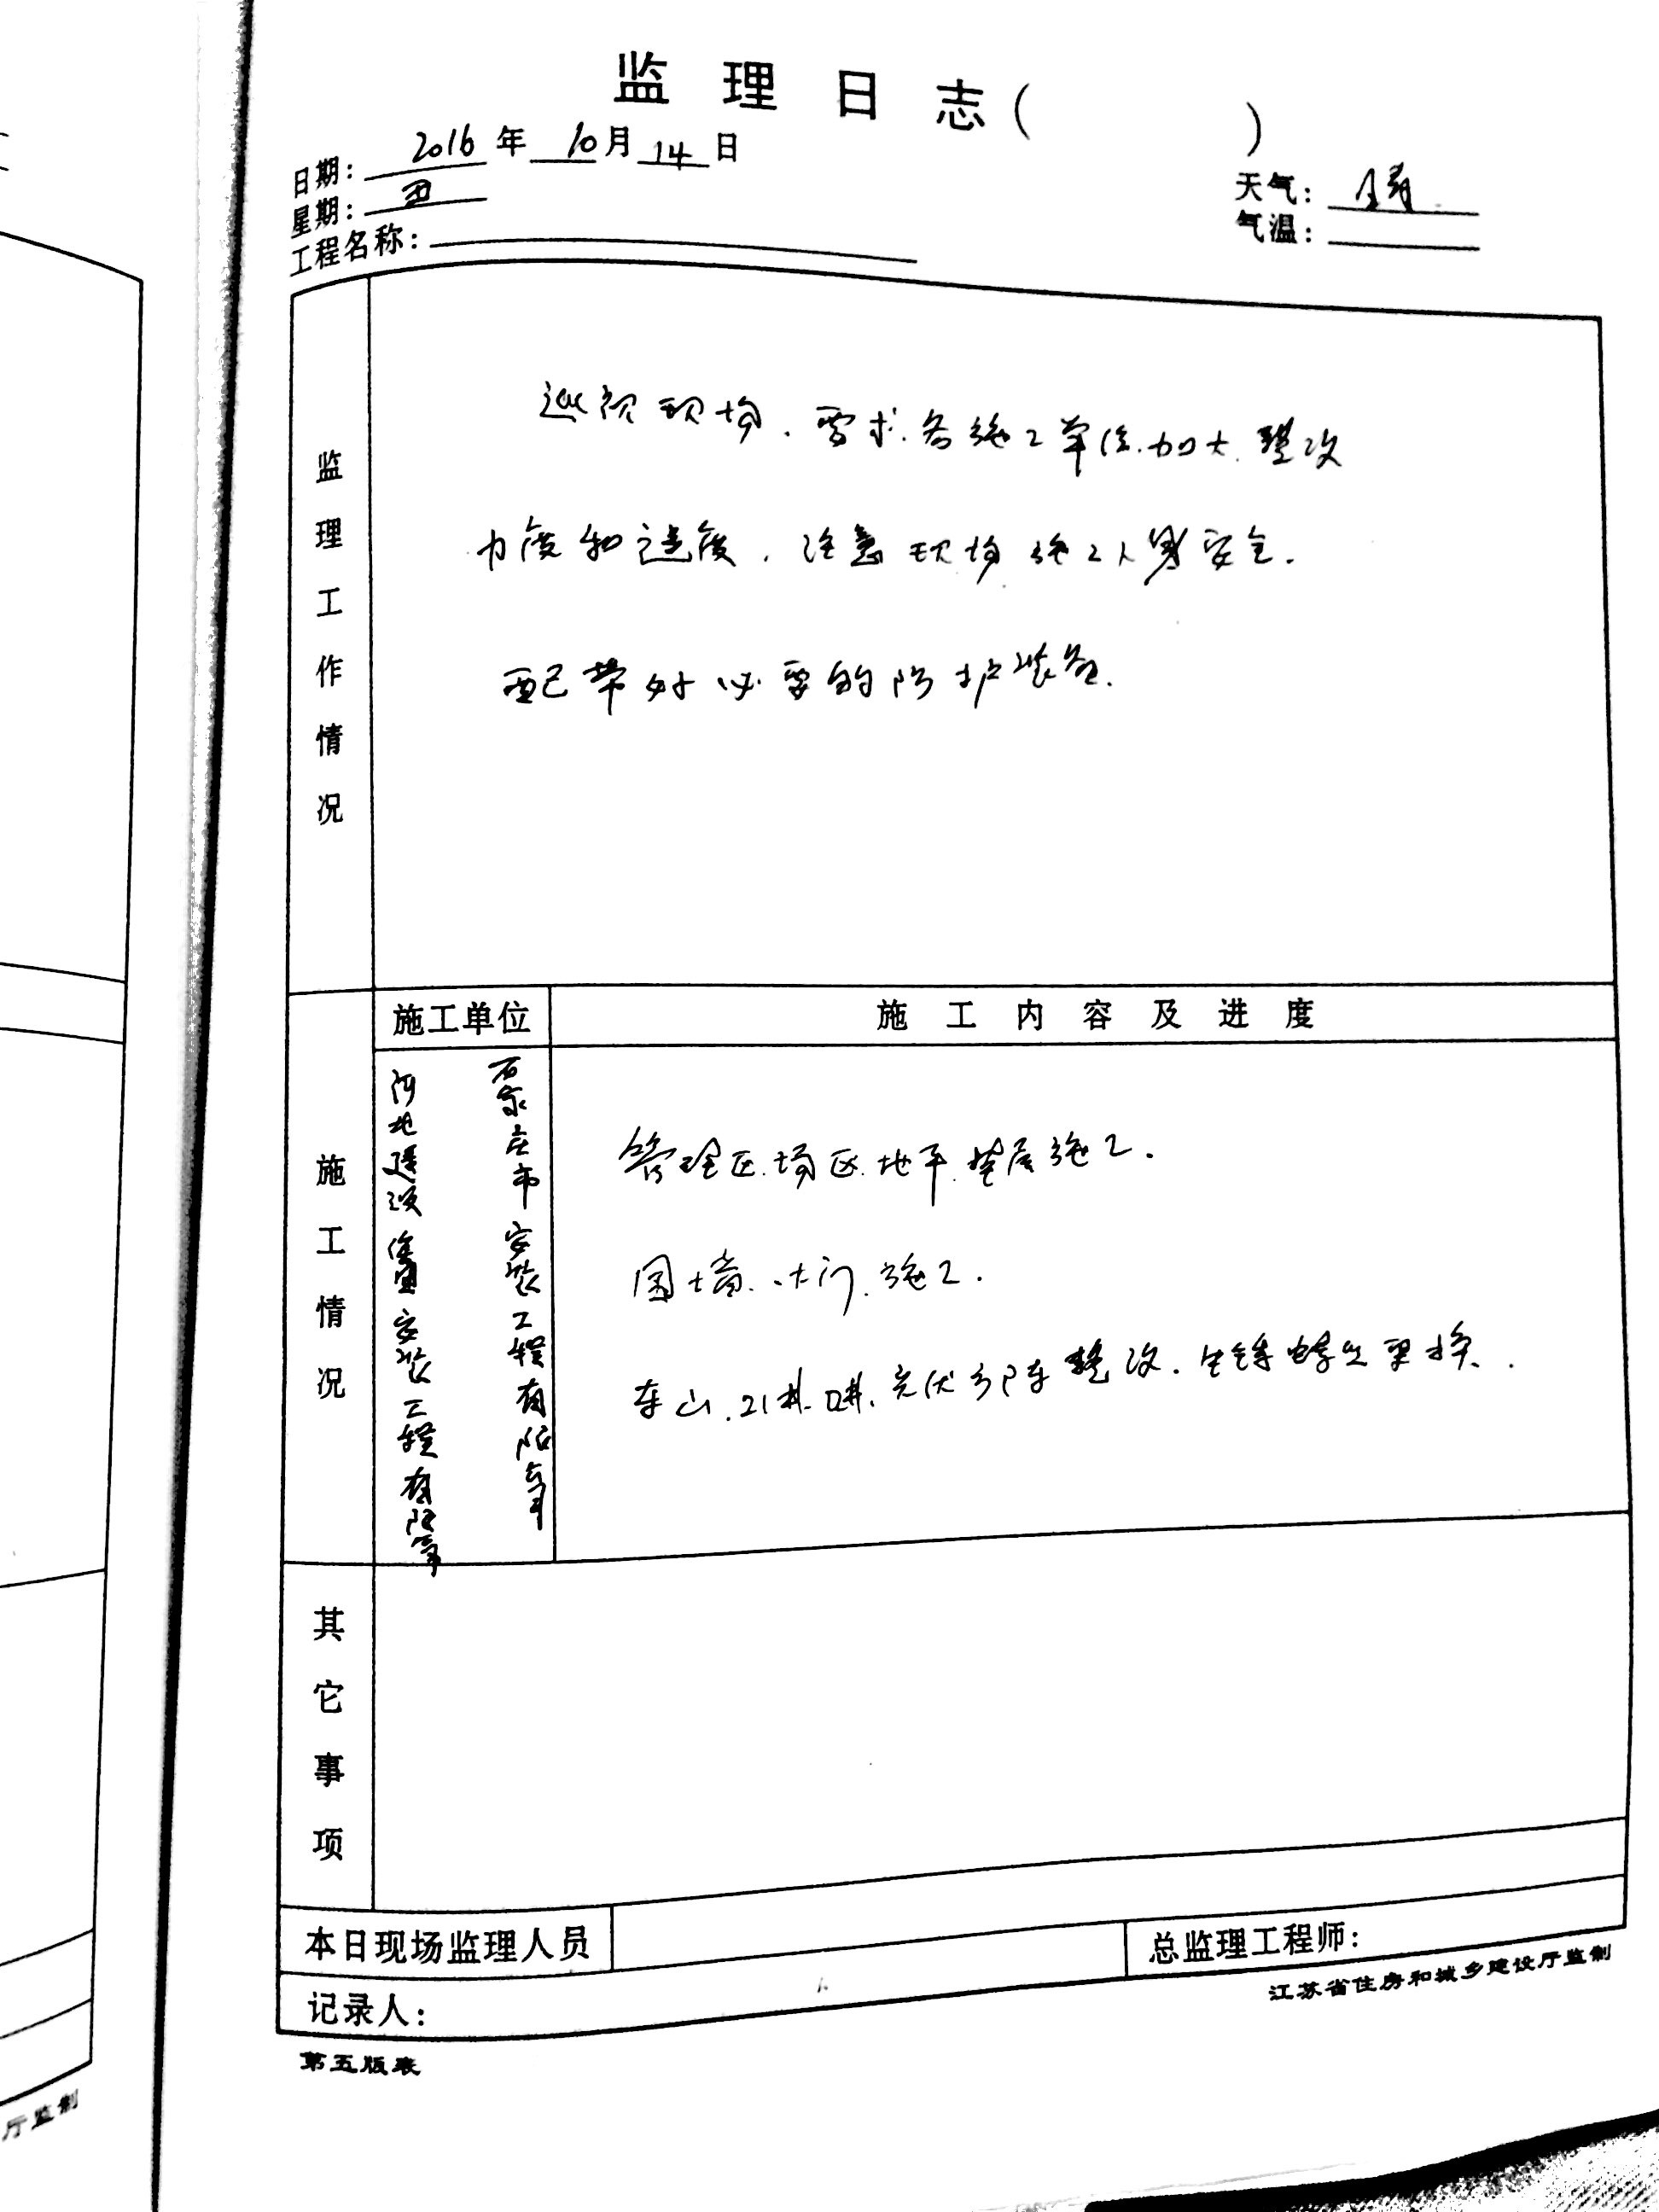 监理日志（　　）
日期：2016年10月14日
星期：五
天气：晴
气温：
工程名称：
监理工作情况
巡视现场．要求各施工单位加大整改
力度和进度．注意现场施工人身安全．
配带好必要的防护装备．
施工情况
施工单位
施工内容及进度
石家庄市安装工程有限公司
河北建设集团安装工程有限公司
管理区场区地平垫层施工．
围墙．大门．施工．
东山．21#．光伏方阵整改．生锈螺丝更换．
其它事项
本日现场监理人员
总监理工程师：
记录人：
江苏省住房和城乡建设厅监制
第五版表
厅监制